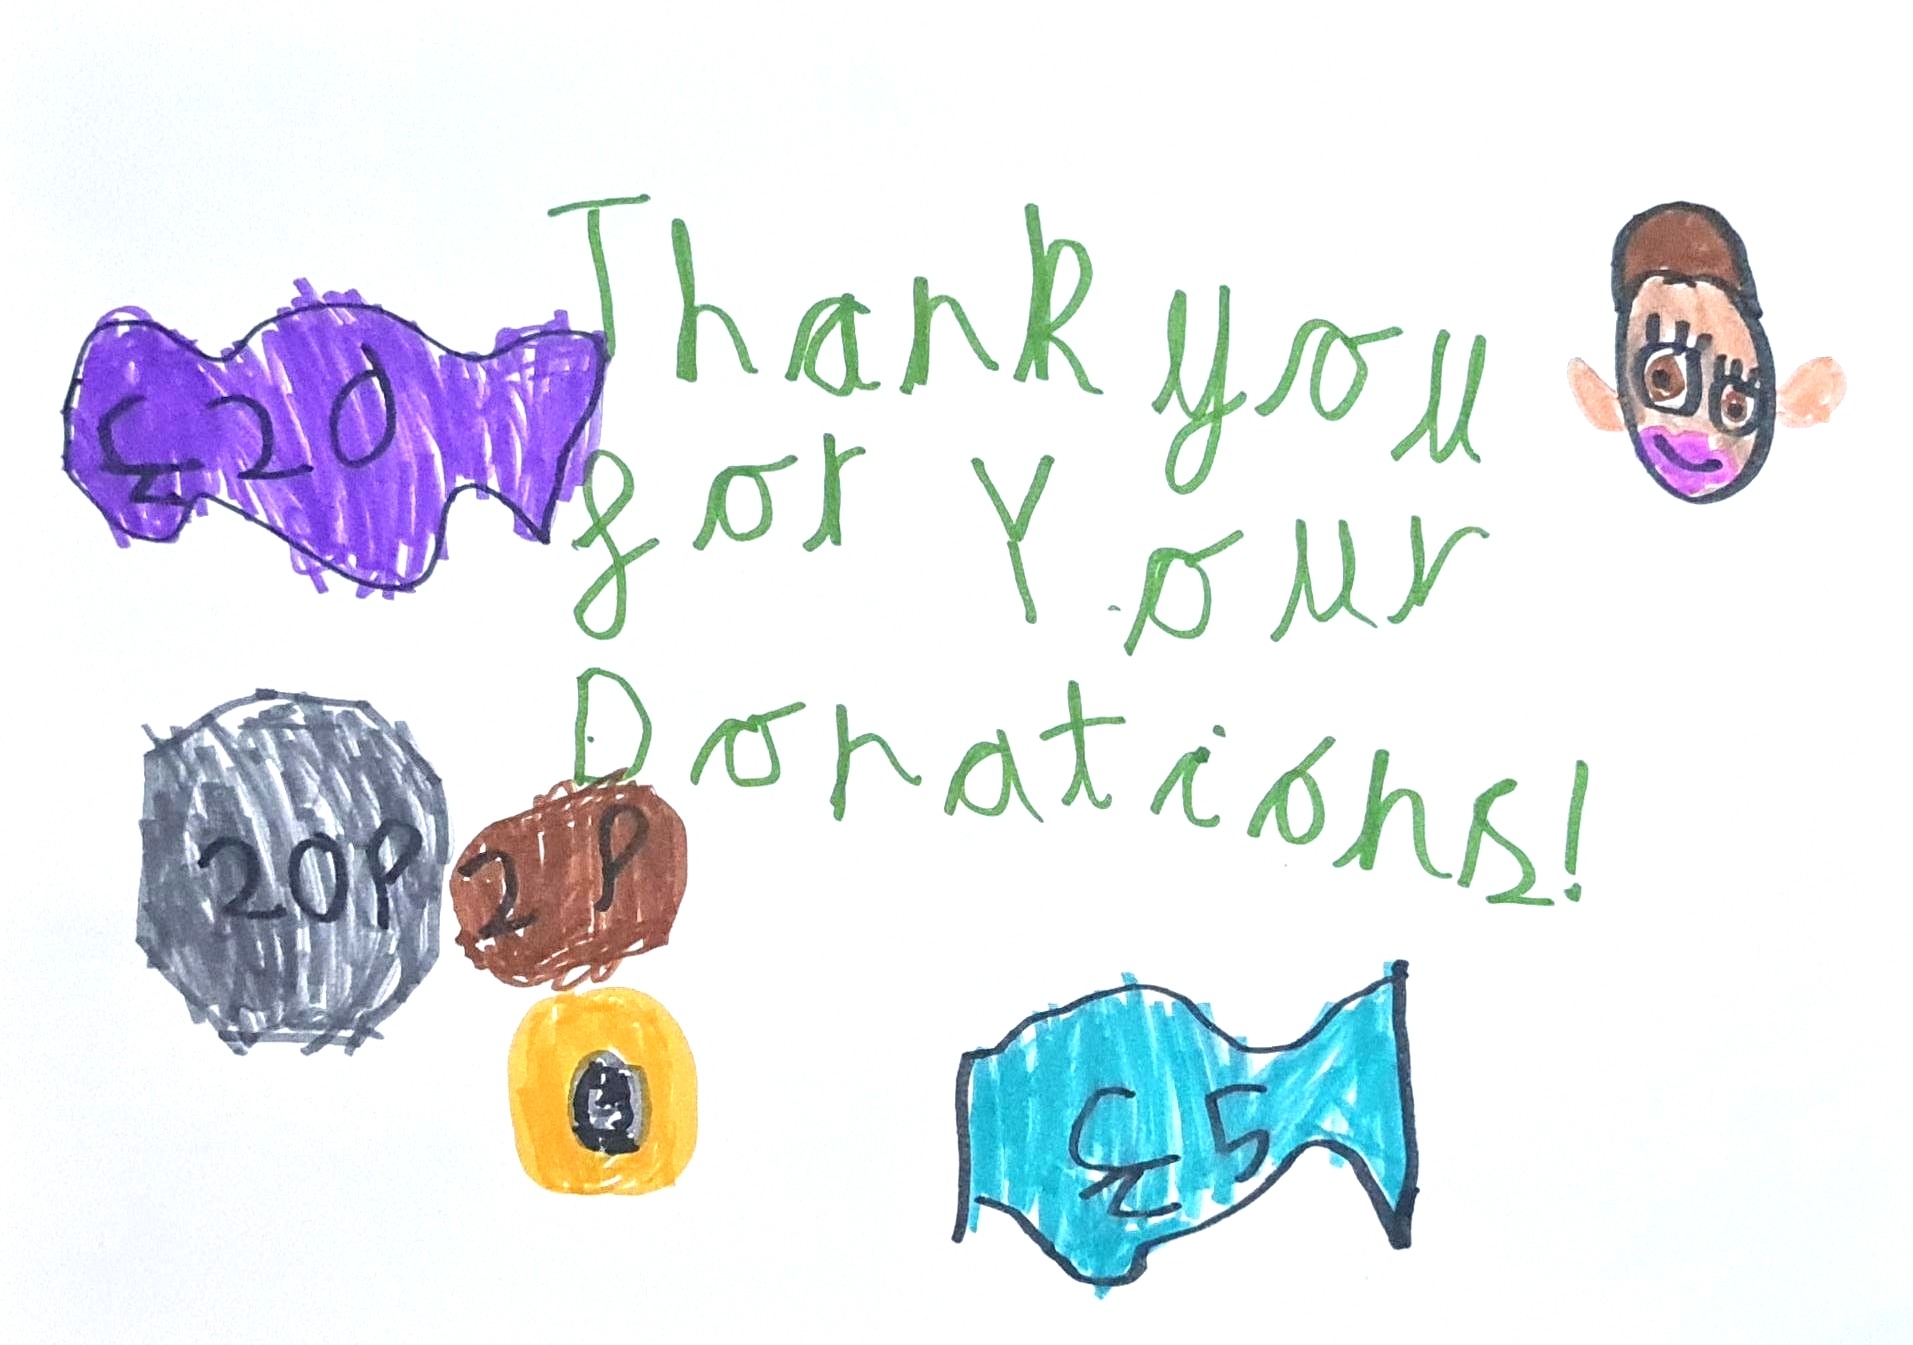 Thank you
for Your
Donations!
£20
20P
2P
£5